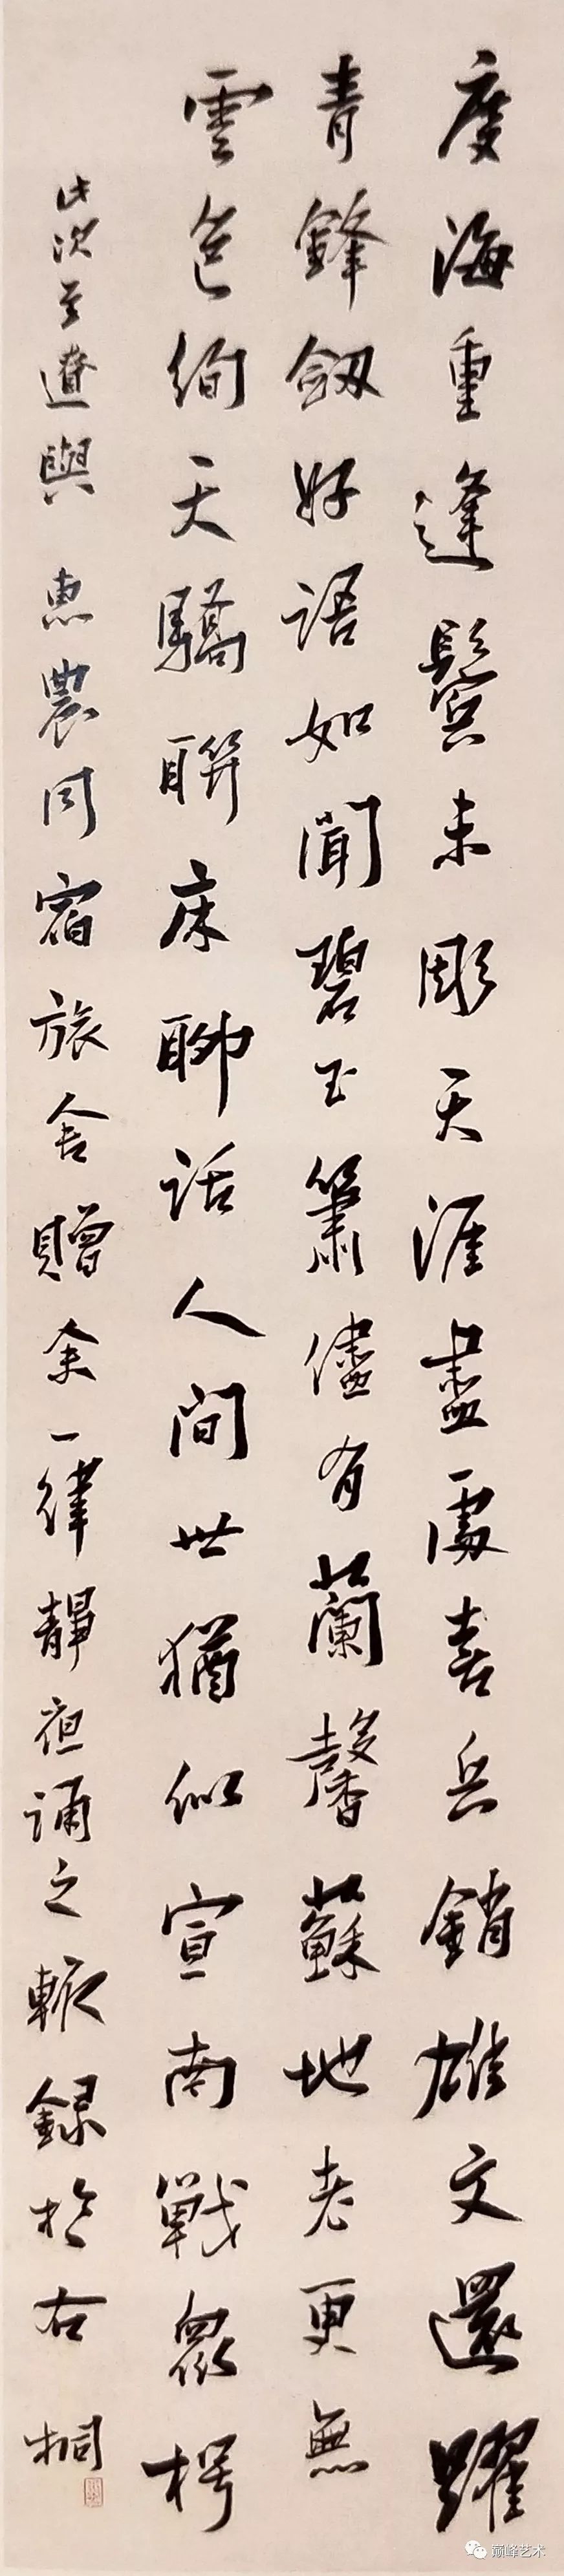 度海重逢鬢未彫天涯盡處喜兵銷雄文還躍
青鋒劒好語如聞碧玉簫儘有蘭馨蘇地老更無
雲色絢天驕聯床聊話人間世猶似宣南戰眾枵
此次至遼與惠農同宿旅舍贈余一律靜夜誦之輒錄於右 桐
巅峰艺术